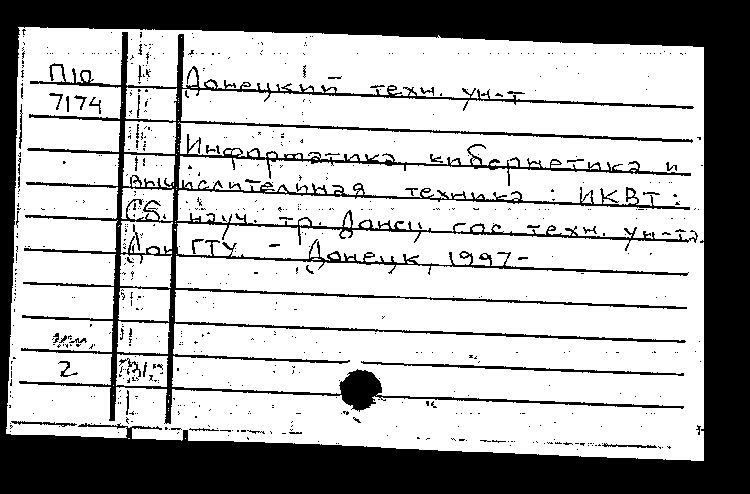 П10
7174
Донецкий техн. ун-т
Информатика, кибернетика и
вычислительная техника : ИКВТ :
Сб. науч. тр. Донец. гос. техн. ун-та.
ДонГТУ. - Донецк, 1997-
2